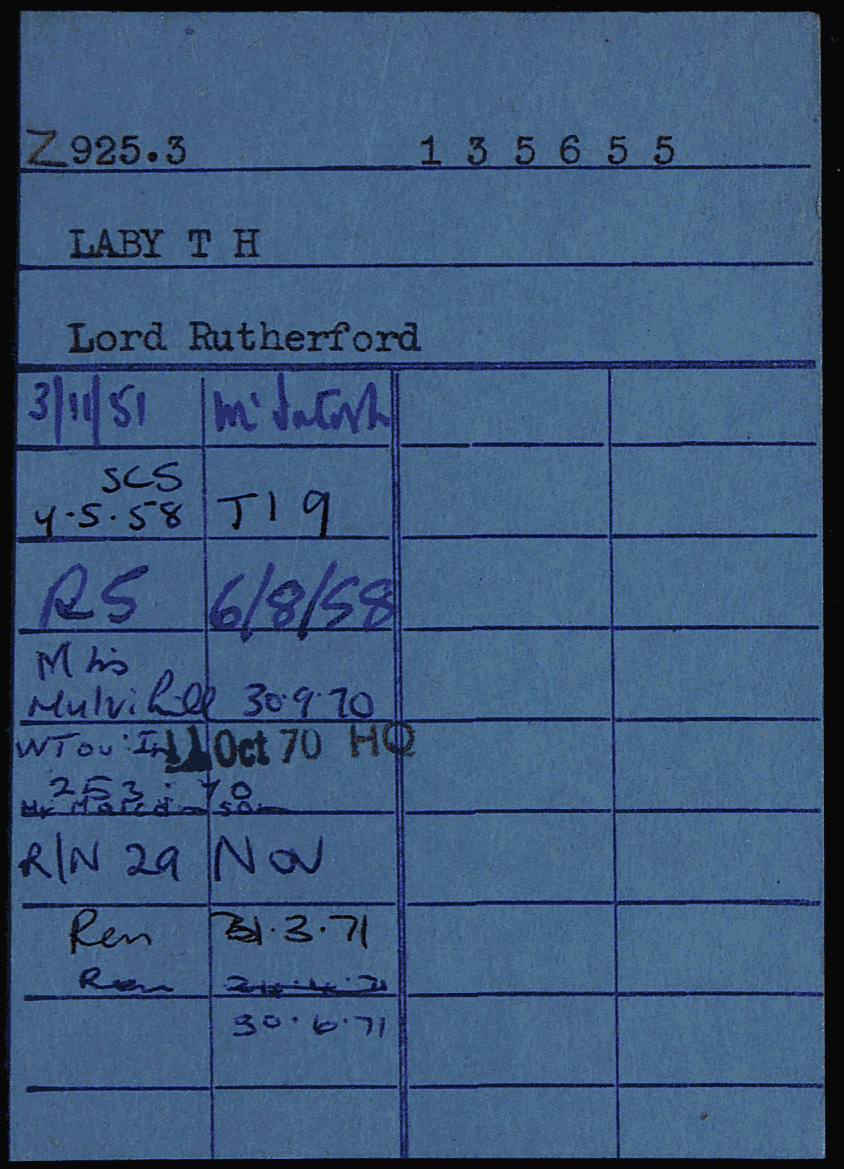 Z925.3 135655
LABY T H
Lord Rutherford
3/11/51 McIntosh
SCS
4.5.58 T19
RS 6/8/58
Miss
Mulvihill 30.9.70
11 Oct 70 HQ
253 70
R/N 29 Nov
Ren 31.3.71
Ren
30.6.71